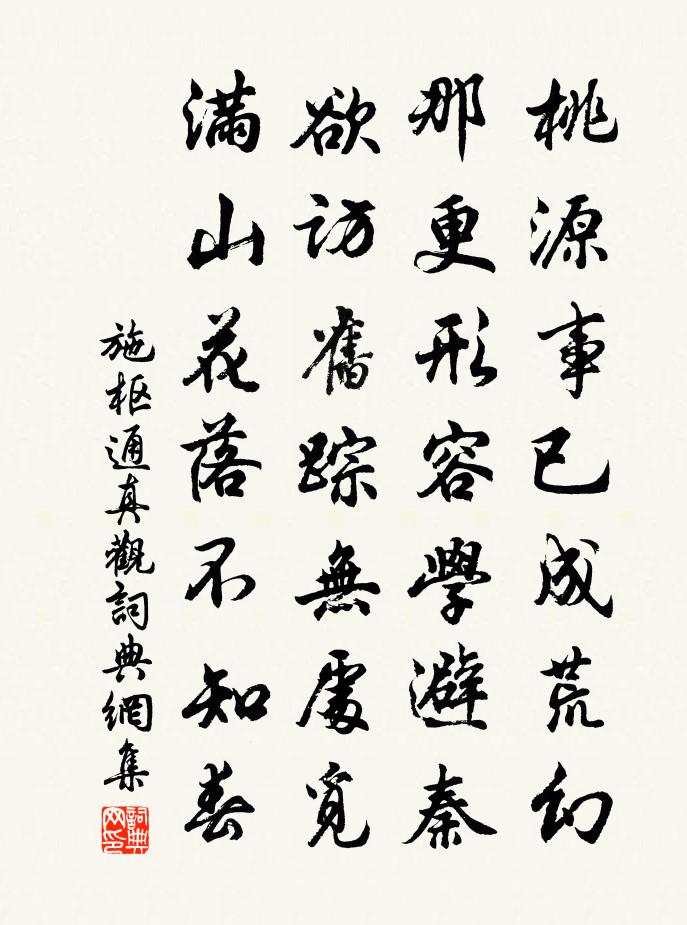 桃源事已成荒幻
那更形容學避秦
欲訪舊踪無處覓
滿山花落不知春
施枢通真觀詞典網集
詞典网印